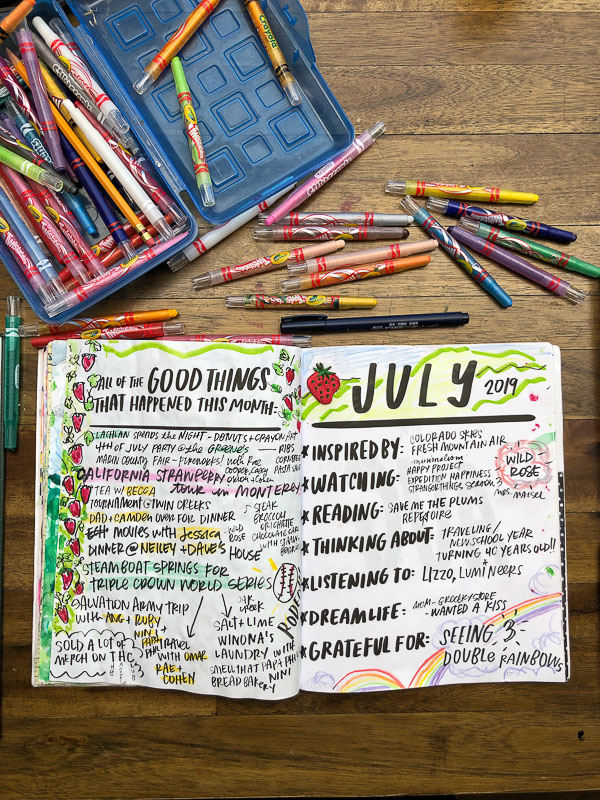 Crayola
Twistables
ALL OF THE GOOD THINGS
THAT HAPPENED THIS MONTH:
LACHLAN SPENDS the NIGHT - DONUTS + CRAYON ART
4TH OF JULY PARTY @ the GREENE'S
RIBS
MARIN COUNTY FAIR - FIREWORKS! with Rae
CALIFORNIA STRAWBERRY
tour in MONTEREY
TEA w/ BECCA
TOURNAMENT @ TWIN CREEKS
DAD + CAMDEN OVER FOR DINNER
STEAK
BROCCOLI
ORICHETTE
CHOCOLATE CAKE
MOVIES with Jessica
WILD
ROSE
DINNER @ NEILEY + DAVE'S HOUSE
STEAMBOAT SPRINGS FOR
TRIPLE CROWN WORLD SERIES
SALVATION ARMY TRIP
WITH ANG + RUBY
NINI
PAPA
PHIL
TRAVEL
WITH OMAR
RAE +
COHEN
SALT + LIME
WINONA'S
LAUNDRY WITH
NINI
SMELL THAT PAPA PHIL
BREAD BAKERY
SOLD A LOT of
MERCH ON THE
JULY 2019
INSPIRED BY: COLORADO SKIES
FRESH MOUNTAIN AIR
WATCHING:
HAPPY PROJECT
EXPEDITION HAPPINESS
STRANGER THINGS SEASON 3
MS. MAISEL
WILD
ROSE
READING: SAVE ME THE PLUMS
REPERTOIRE
THINKING ABOUT: TRAVELING /
NEW SCHOOL YEAR
TURNING 40 YEARS OLD!!
LISTENING TO: LIZZO, LUMINEERS
DREAMLIFE: MOM - GROCERY STORE
- WANTED A KISS
GRATEFUL FOR: SEEING 3
DOUBLE RAINBOWS